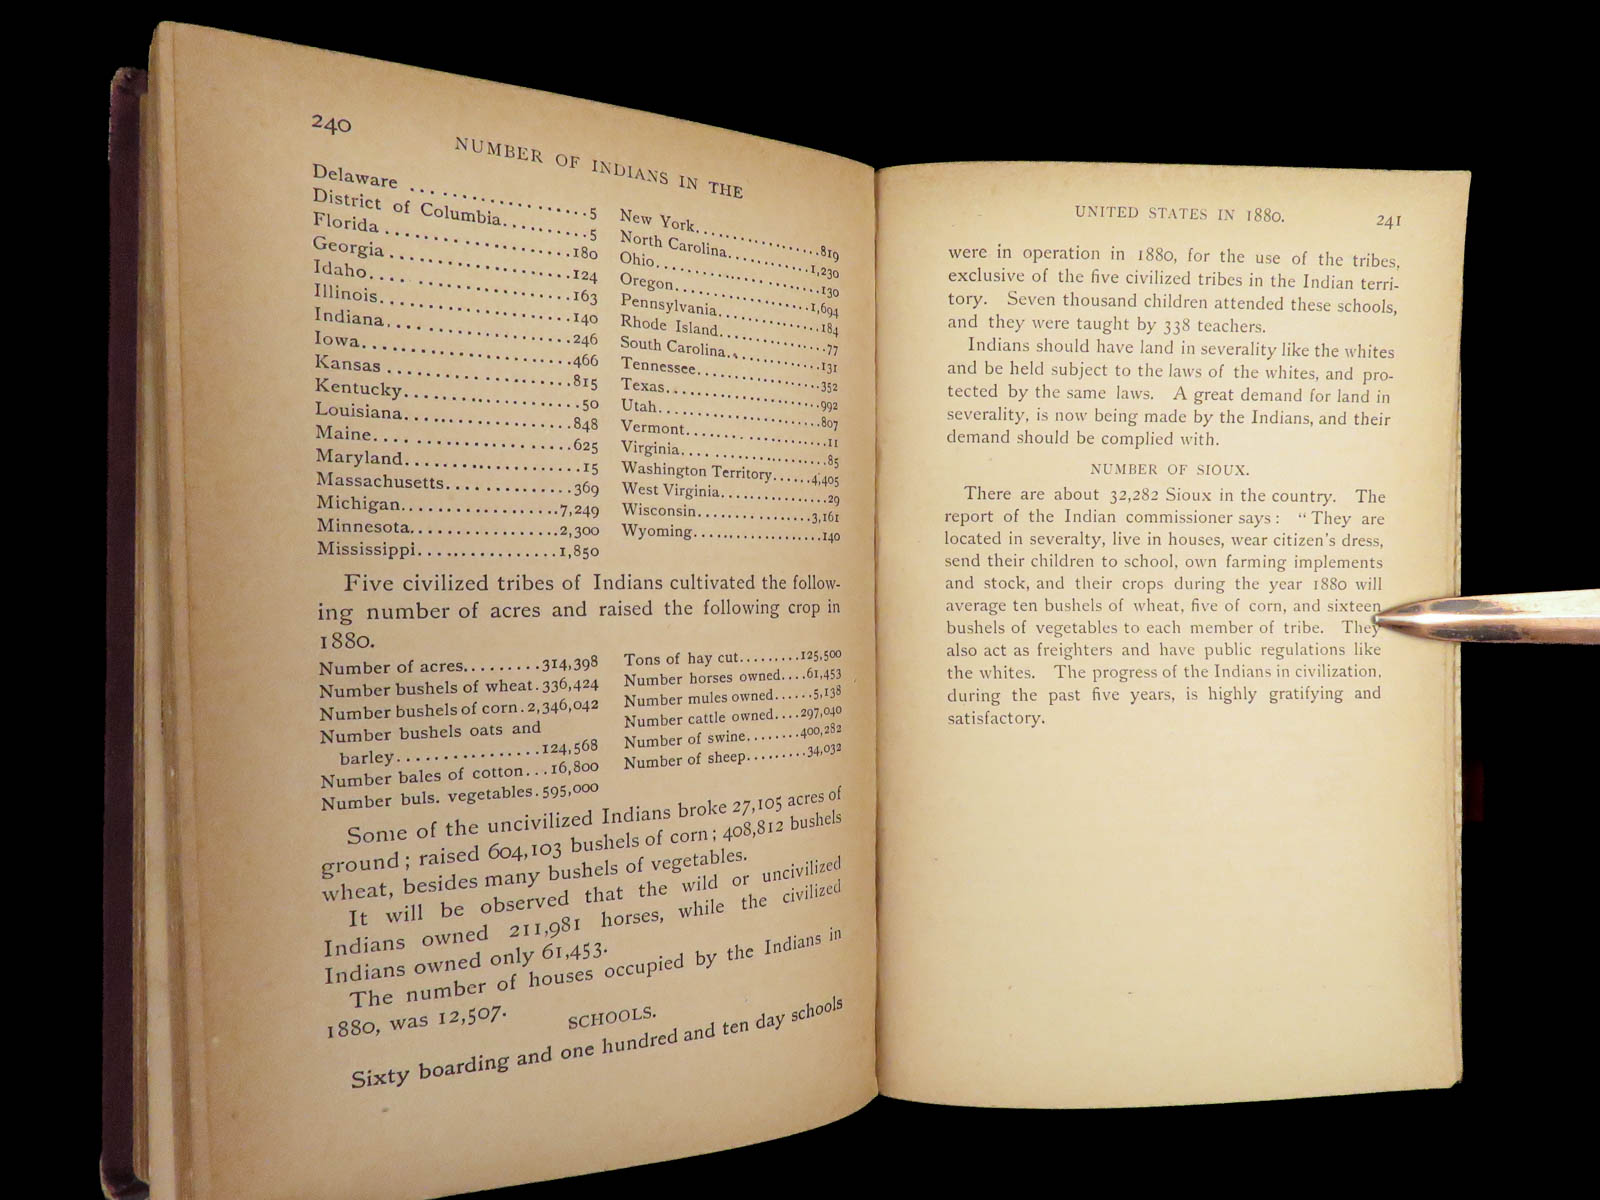 240
NUMBER OF INDIANS IN THE
Delaware ..................5
District of Columbia..........5
Florida ..................180
Georgia ..................124
Idaho....................163
Illinois...................140
Indiana..................246
Iowa....................466
Kansas ..................815
Kentucky.................50
Louisiana.................848
Maine....................625
Maryland.................15
Massachusetts.............369
Michigan.................7,249
Minnesota................2,300
Mississippi...............1,850
New York................819
North Carolina...........1,230
Ohio....................130
Oregon.................1,694
Pennsylvania.............184
Rhode Island.............77
South Carolina............131
Tennessee................352
Texas...................992
Utah....................807
Vermont.................11
Virginia..................85
Washington Territory......4,405
West Virginia.............29
Wisconsin...............3,161
Wyoming.................140
Five civilized tribes of Indians cultivated the follow-
ing number of acres and raised the following crop in
1880.
Number of acres.........314,398
Number bushels of wheat.336,424
Number bushels of corn.2,346,042
Number bushels oats and
barley................124,568
Number bales of cotton...16,800
Number buls. vegetables.595,000
Tons of hay cut.........125,500
Number horses owned....61,453
Number mules owned......5,138
Number cattle owned....297,040
Number of swine........400,282
Number of sheep.........34,032
Some of the uncivilized Indians broke 27,105 acres of
ground; raised 604,103 bushels of corn; 408,812 bushels
wheat, besides many bushels of vegetables.
It will be observed that the wild or uncivilized
Indians owned 211,981 horses, while the civilized
Indians owned only 61,453.
The number of houses occupied by the Indians in
1880, was 12,507.
SCHOOLS.
Sixty boarding and one hundred and ten day schools
UNITED STATES IN 1880.
241
were in operation in 1880, for the use of the tribes,
exclusive of the five civilized tribes in the Indian terri-
tory. Seven thousand children attended these schools,
and they were taught by 338 teachers.
Indians should have land in severality like the whites
and be held subject to the laws of the whites, and pro-
tected by the same laws. A great demand for land in
severality, is now being made by the Indians, and their
demand should be complied with.
NUMBER OF SIOUX.
There are about 32,282 Sioux in the country. The
report of the Indian commissioner says: “They are
located in severalty, live in houses, wear citizen's dress,
send their children to school, own farming implements
and stock, and their crops during the year 1880 will
average ten bushels of wheat, five of corn, and sixteen
bushels of vegetables to each member of tribe. They
also act as freighters and have public regulations like
the whites. The progress of the Indians in civilization,
during the past five years, is highly gratifying and
satisfactory.